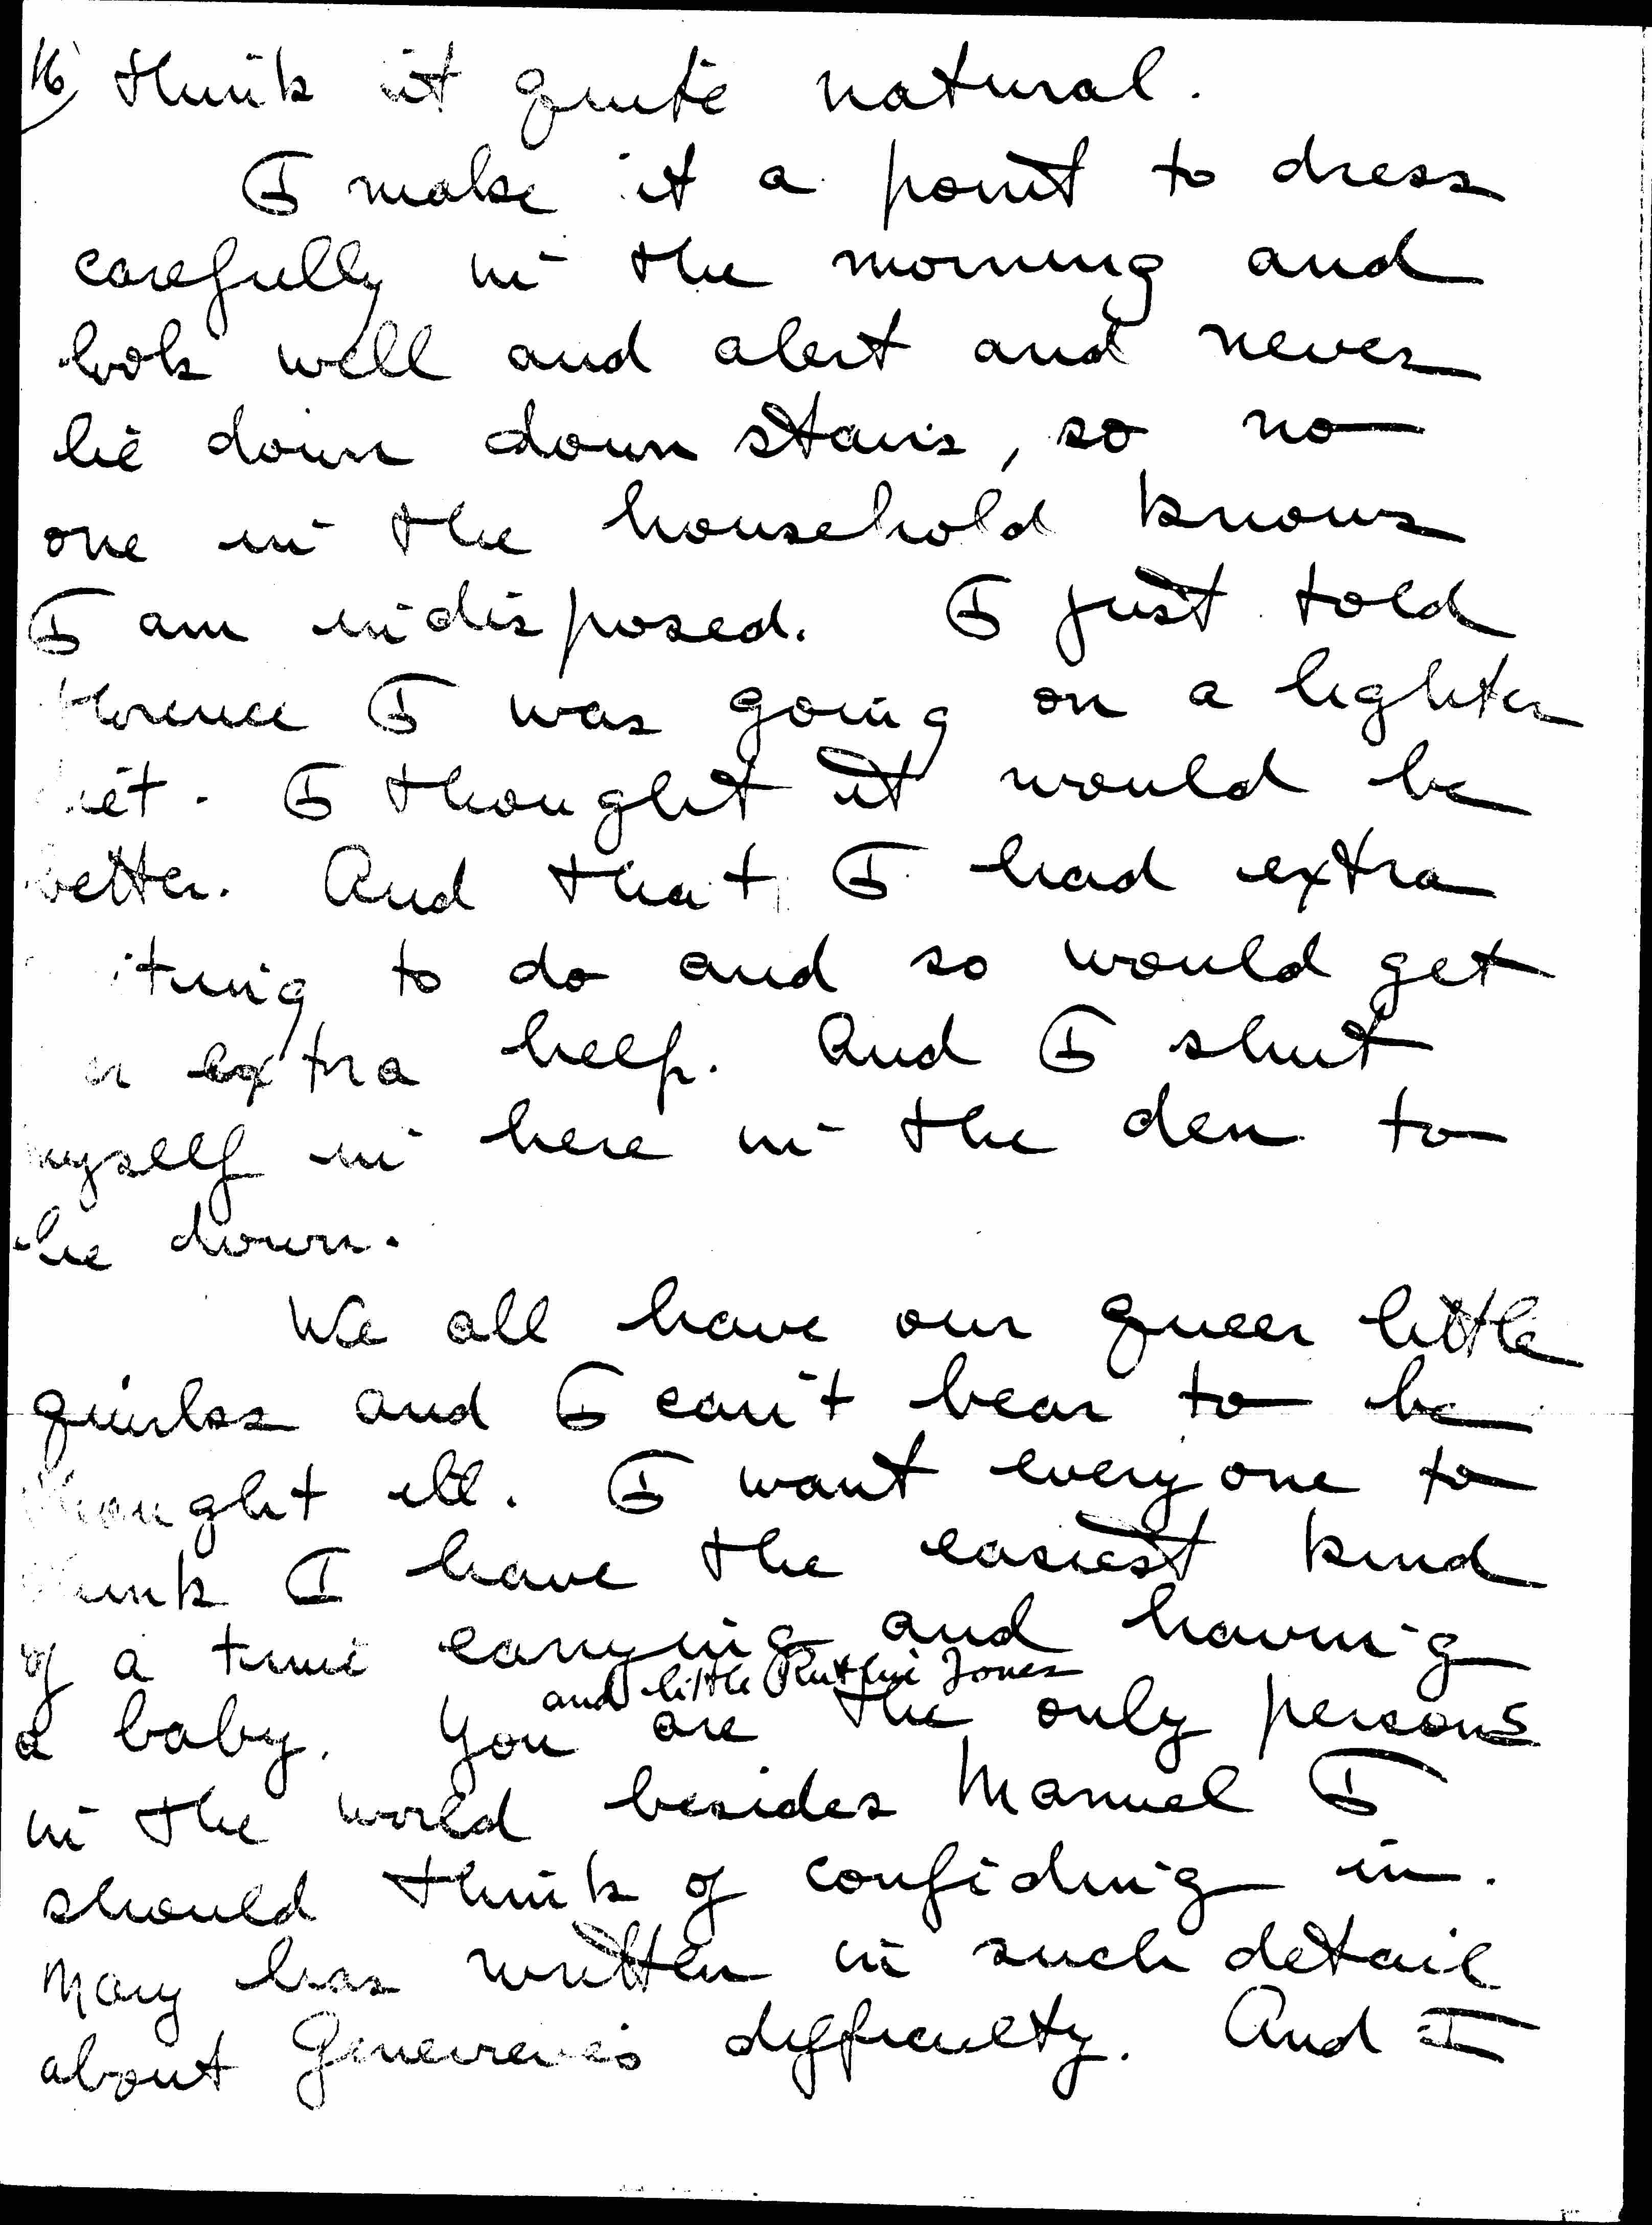 16) think it quite natural.
I make it a point to dress
carefully in the morning and
look well and alert and never
lie down down stairs, so no
one in the household knows
I am indisposed. I just told
Florence I was going on a lighter
diet. I thought it would be
better. And that I had extra
to do and so would get
extra help. And I shut
myself in here in the den to
lie down.
We all have our queer little
quirks and I can't bear to be
thought ill. I want every one to
think I have the easiest kind
of a time carrying and having
and little Ruthie Jones
a baby. You are the only persons
in the world besides Manuel I
should think of confiding in.
Mary has written in such detail
about Genevieve's difficulty. And I